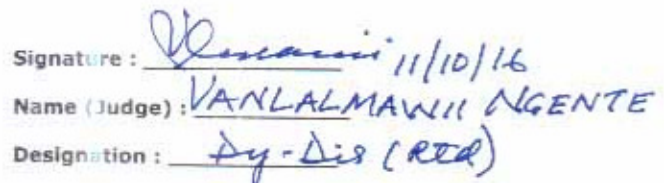 Signature : 11/10/16
Name (Judge) : VANLALMAWII NGENTE
Designation : Dy-Dis (Rtd)